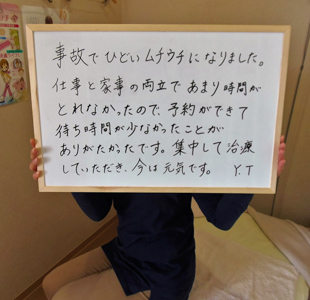 事故でひどいムチウチになりました。
仕事と家事の両立であまり時間が
とれなかったので、予約ができて
待ち時間が少なかったことが
ありがたかったです。集中して治療
していただき、今は元気です。 Y.T